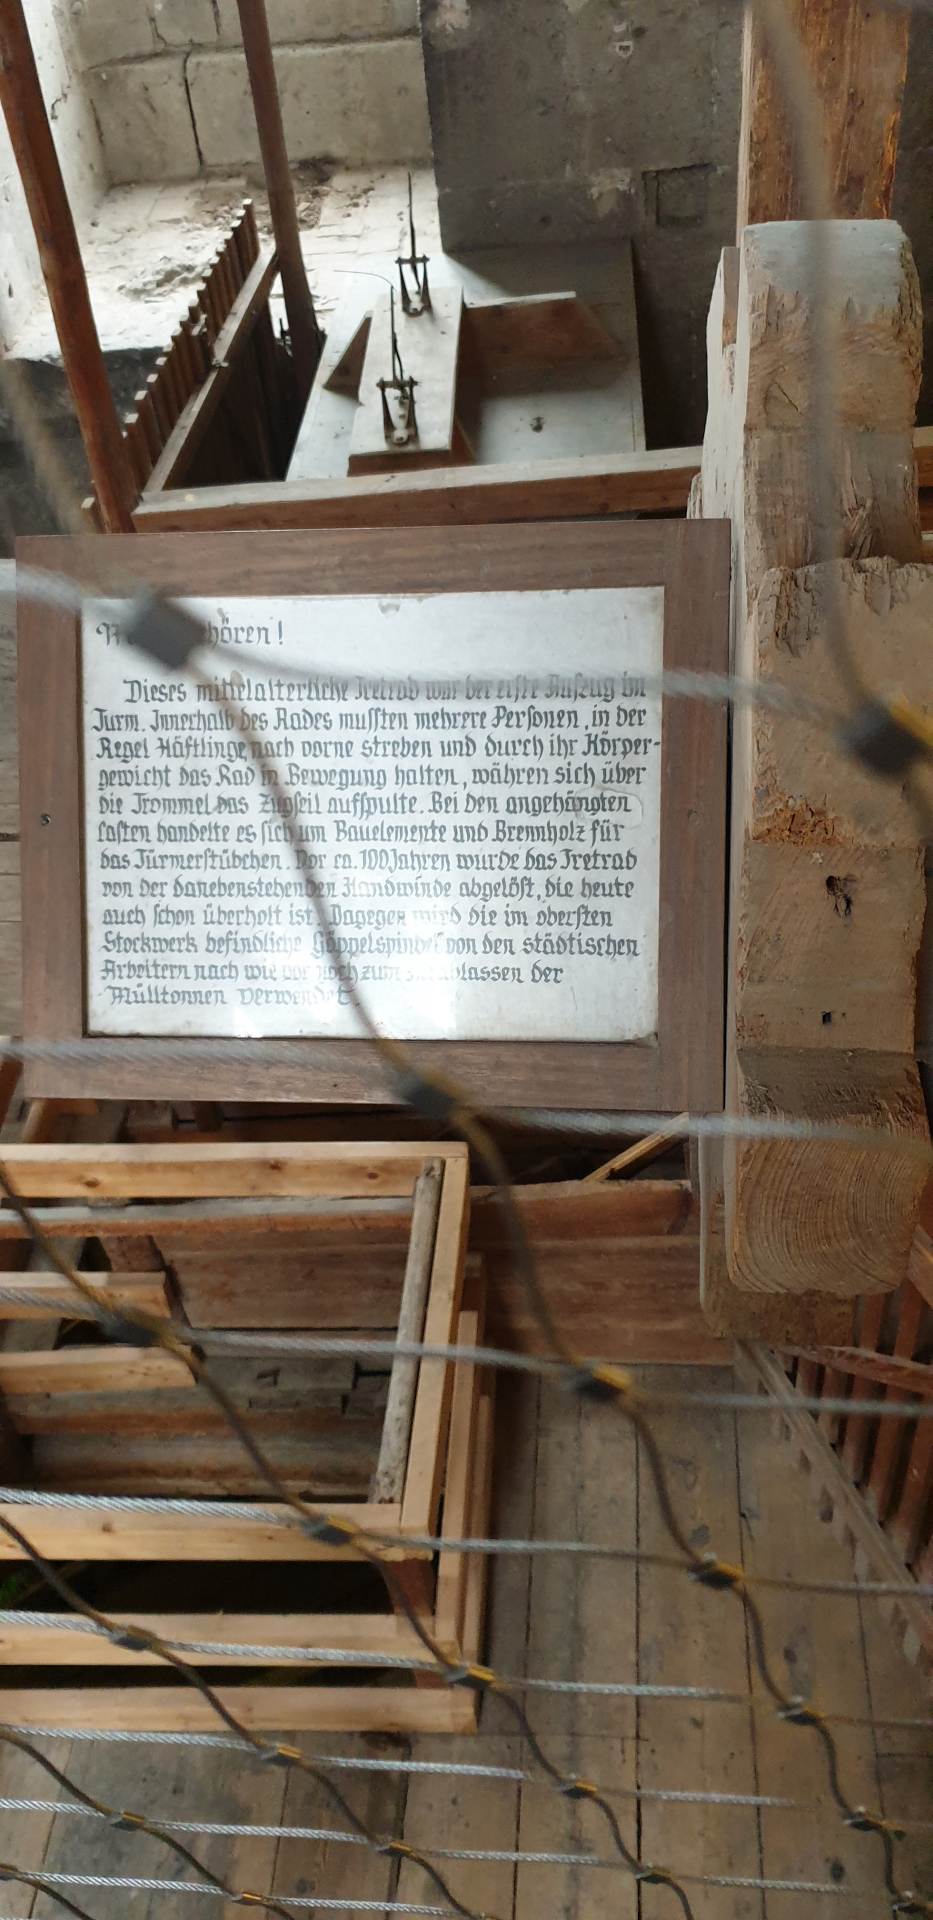 hören!
Dieses mittelalterliche Tretrad war der erste Aufzug im
Turm. Innerhalb des Rades mussten mehrere Personen, in der
Regel Häftlinge, nach vorne streben und durch ihr Körper-
gewicht das Rad in Bewegung halten, währen sich über
die Trommel das Zugseil aufspulte. Bei den angehängten
Lasten handelte es sich um Bauelemente und Brennholz für
das Türmerstübchen. Vor ca. 100 Jahren wurde das Tretrad
von der danebenstehenden Handwinde abgelöst, die heute
auch schon überholt ist. Dagegen wird die im obersten
Stockwerk befindliche Göppelspindel von den städtischen
Arbeitern nach wie vor noch zum Herablassen der
Mülltonnen verwendet.